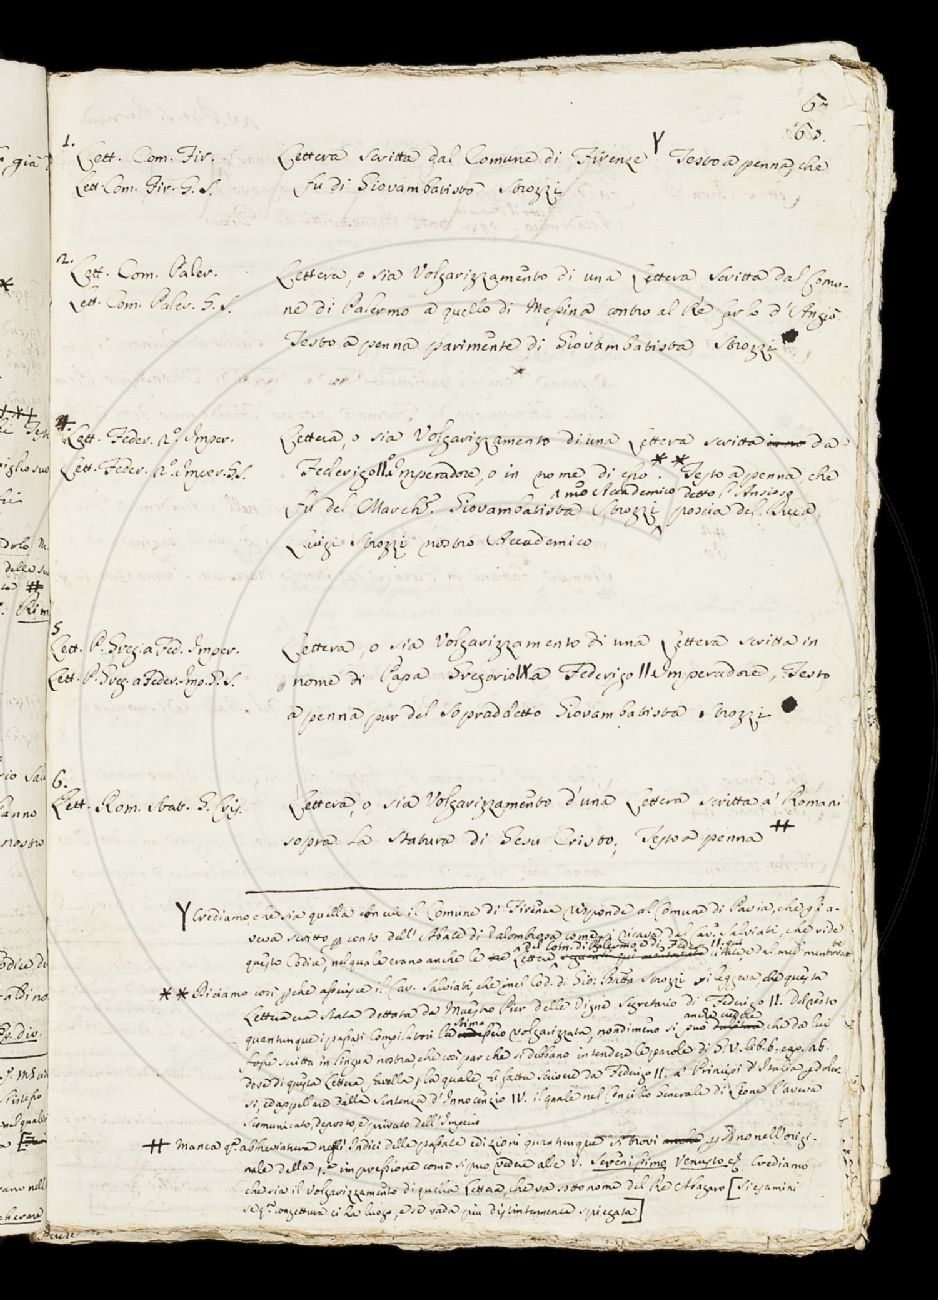 67
63.
1.
Lett. Com. Fir.
Lett. Com. Fir. G. S.
Lettera scritta dal Comune di Firenze Y Testo a penna, che
fu di Giovambatista Strozzi
2.
Lett. Com. Paler.
Lett. Com. Paler. G. S.
Lettera, o sia Volgarizzamento di una Lettera scritta dal Comu-
ne di Palermo a quello di Messina contro al Re Carlo d'Angiò
Testo a penna parimente di Giovambatista Strozzi
4.
Lett. Feder. 2.º Imper.
Lett. Feder. 2.º Imper. G. S.
Lettera, o sia Volgarizzamento di una Lettera scritta da
Federigo II. Imperadore, o in nome di esso. ** Testo a penna che
nro Accademico detto l'Ansioso
fu del March.e Giovambatista Strozzi poscia del Duca
Luigi Strozzi nostro Accademico
5
Lett. P. Greg. a Fed. Imper.
Lett. P. Greg. a Feder. Imp. G. S.
Lettera, o sia Volgarizzamento di una Lettera scritta in
nome di Papa Gregorio IX a Federigo II Imperadore, Testo
a penna pur del sopraddetto Giovambatista Strozzi
6.
Lett. Rom. Stat. G. Cris.
Lettera, o sia Volgarizzamento d'una Lettera scritta a' Romani
sopra la statura di Gesu Cristo, Testo a penna #
Y Crediamo che sia quella con cui il Comune di Firenze risponde al Comune di Pavia, che gli a-
veva scritto p conto dell'Abate di Valombrosa come si ricava dal Cav. Salviati, che vide
del Com. di Palermo, e di Feder. II. qui
questo Codice, nel quale erano anche le Lettere citate e dai med. mentovate
** Diciamo così pche asserisce il Cav. Salviati, che nel Cod. di Gio. Batta Strozzi si leggeva che questa
Lettera era stata dettata da Maestro Pier delle Vigne Segretario di Federigo II. Del resto
quantunque i passati Compilatori la stimassero volgarizzata, nondimeno si può anche credere che da lui
fosse scritta in lingua nostra, che così par che si debbano intendere le parole di G. V. lib. 6. cap. 26.
dove di questa Lettera favella, la quale fu fatta scrivere da Federigo II. a' Principi d'Italia p doler-
si, ed appellare dalla Sentenza d'Innocenzio IV. il quale nel Concilio Generale di Leone l'aveva
scomunicato, deposto, e privato dell'Imperio
# Manca q.a abbreviatura negl'Indici delle passate edizioni quantunque si trovi pfino nell'origi-
nale della 1.a impressione come si può vedere alle V. Serenissimo Venusto ec. Crediamo
che sia il Volgarizzamento di quella Lettera, che va sotto nome del Re Abagaro [Si esamini
se q.a conghiettura ci ha luogo, e se vada più distintamente spiegata]